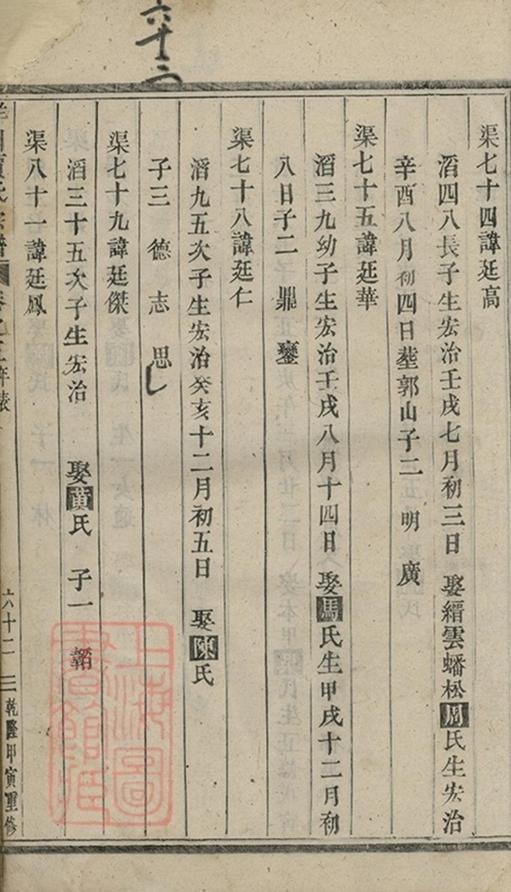 六十三
渠七十四諱廷高
滔四八長子生宏治壬戌七月初三日 娶縉雲蟠松周氏生宏治
辛酉八月初四日塟郭山子二 明 廣
渠七十五諱廷華
滔三九幼子生宏治壬戌八月十四日 娶馬氏生甲戌十二月初
八日子二 鼎 鑾
渠七十八諱廷仁
滔九五次子生宏治癸亥十二月初五日 娶陳氏
子三 德 志 思
渠七十九諱廷傑
滔三十五次子生宏治 娶黃氏 子一 韜
渠八十一諱廷鳳
氏宗譜 卷之 年表 六十二 乾隆甲寅重修
上海圖書館藏